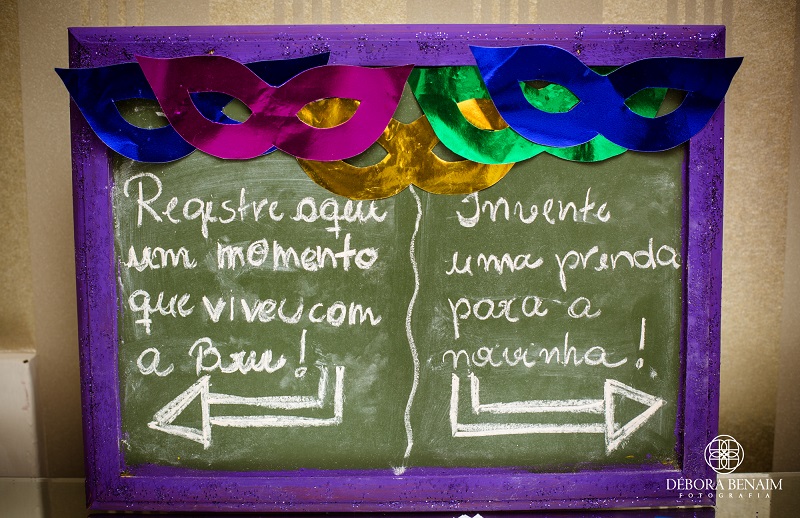 Registre aqui
um momento
que viveu com
a Bru!
Invente
uma prenda
para a
noivinha!
DÉBORA BENAIM
FOTOGRAFIA